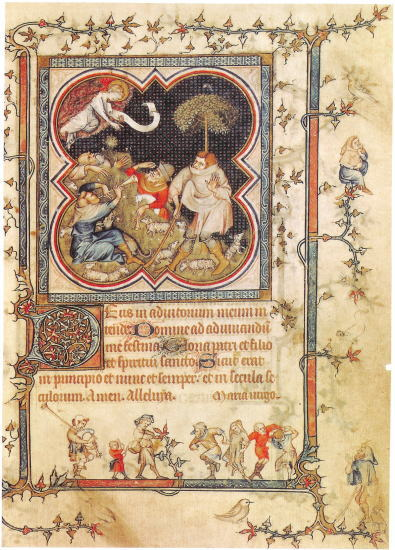 Deus in adiutorium meum in
tende Domine ad adiuuandū
me festina Gloria patri et filio
et spiritui sancto Sicut erat
in principio et nunc et semper et in secula se
culorum. Amen. Alleluya. Maria uirgo.